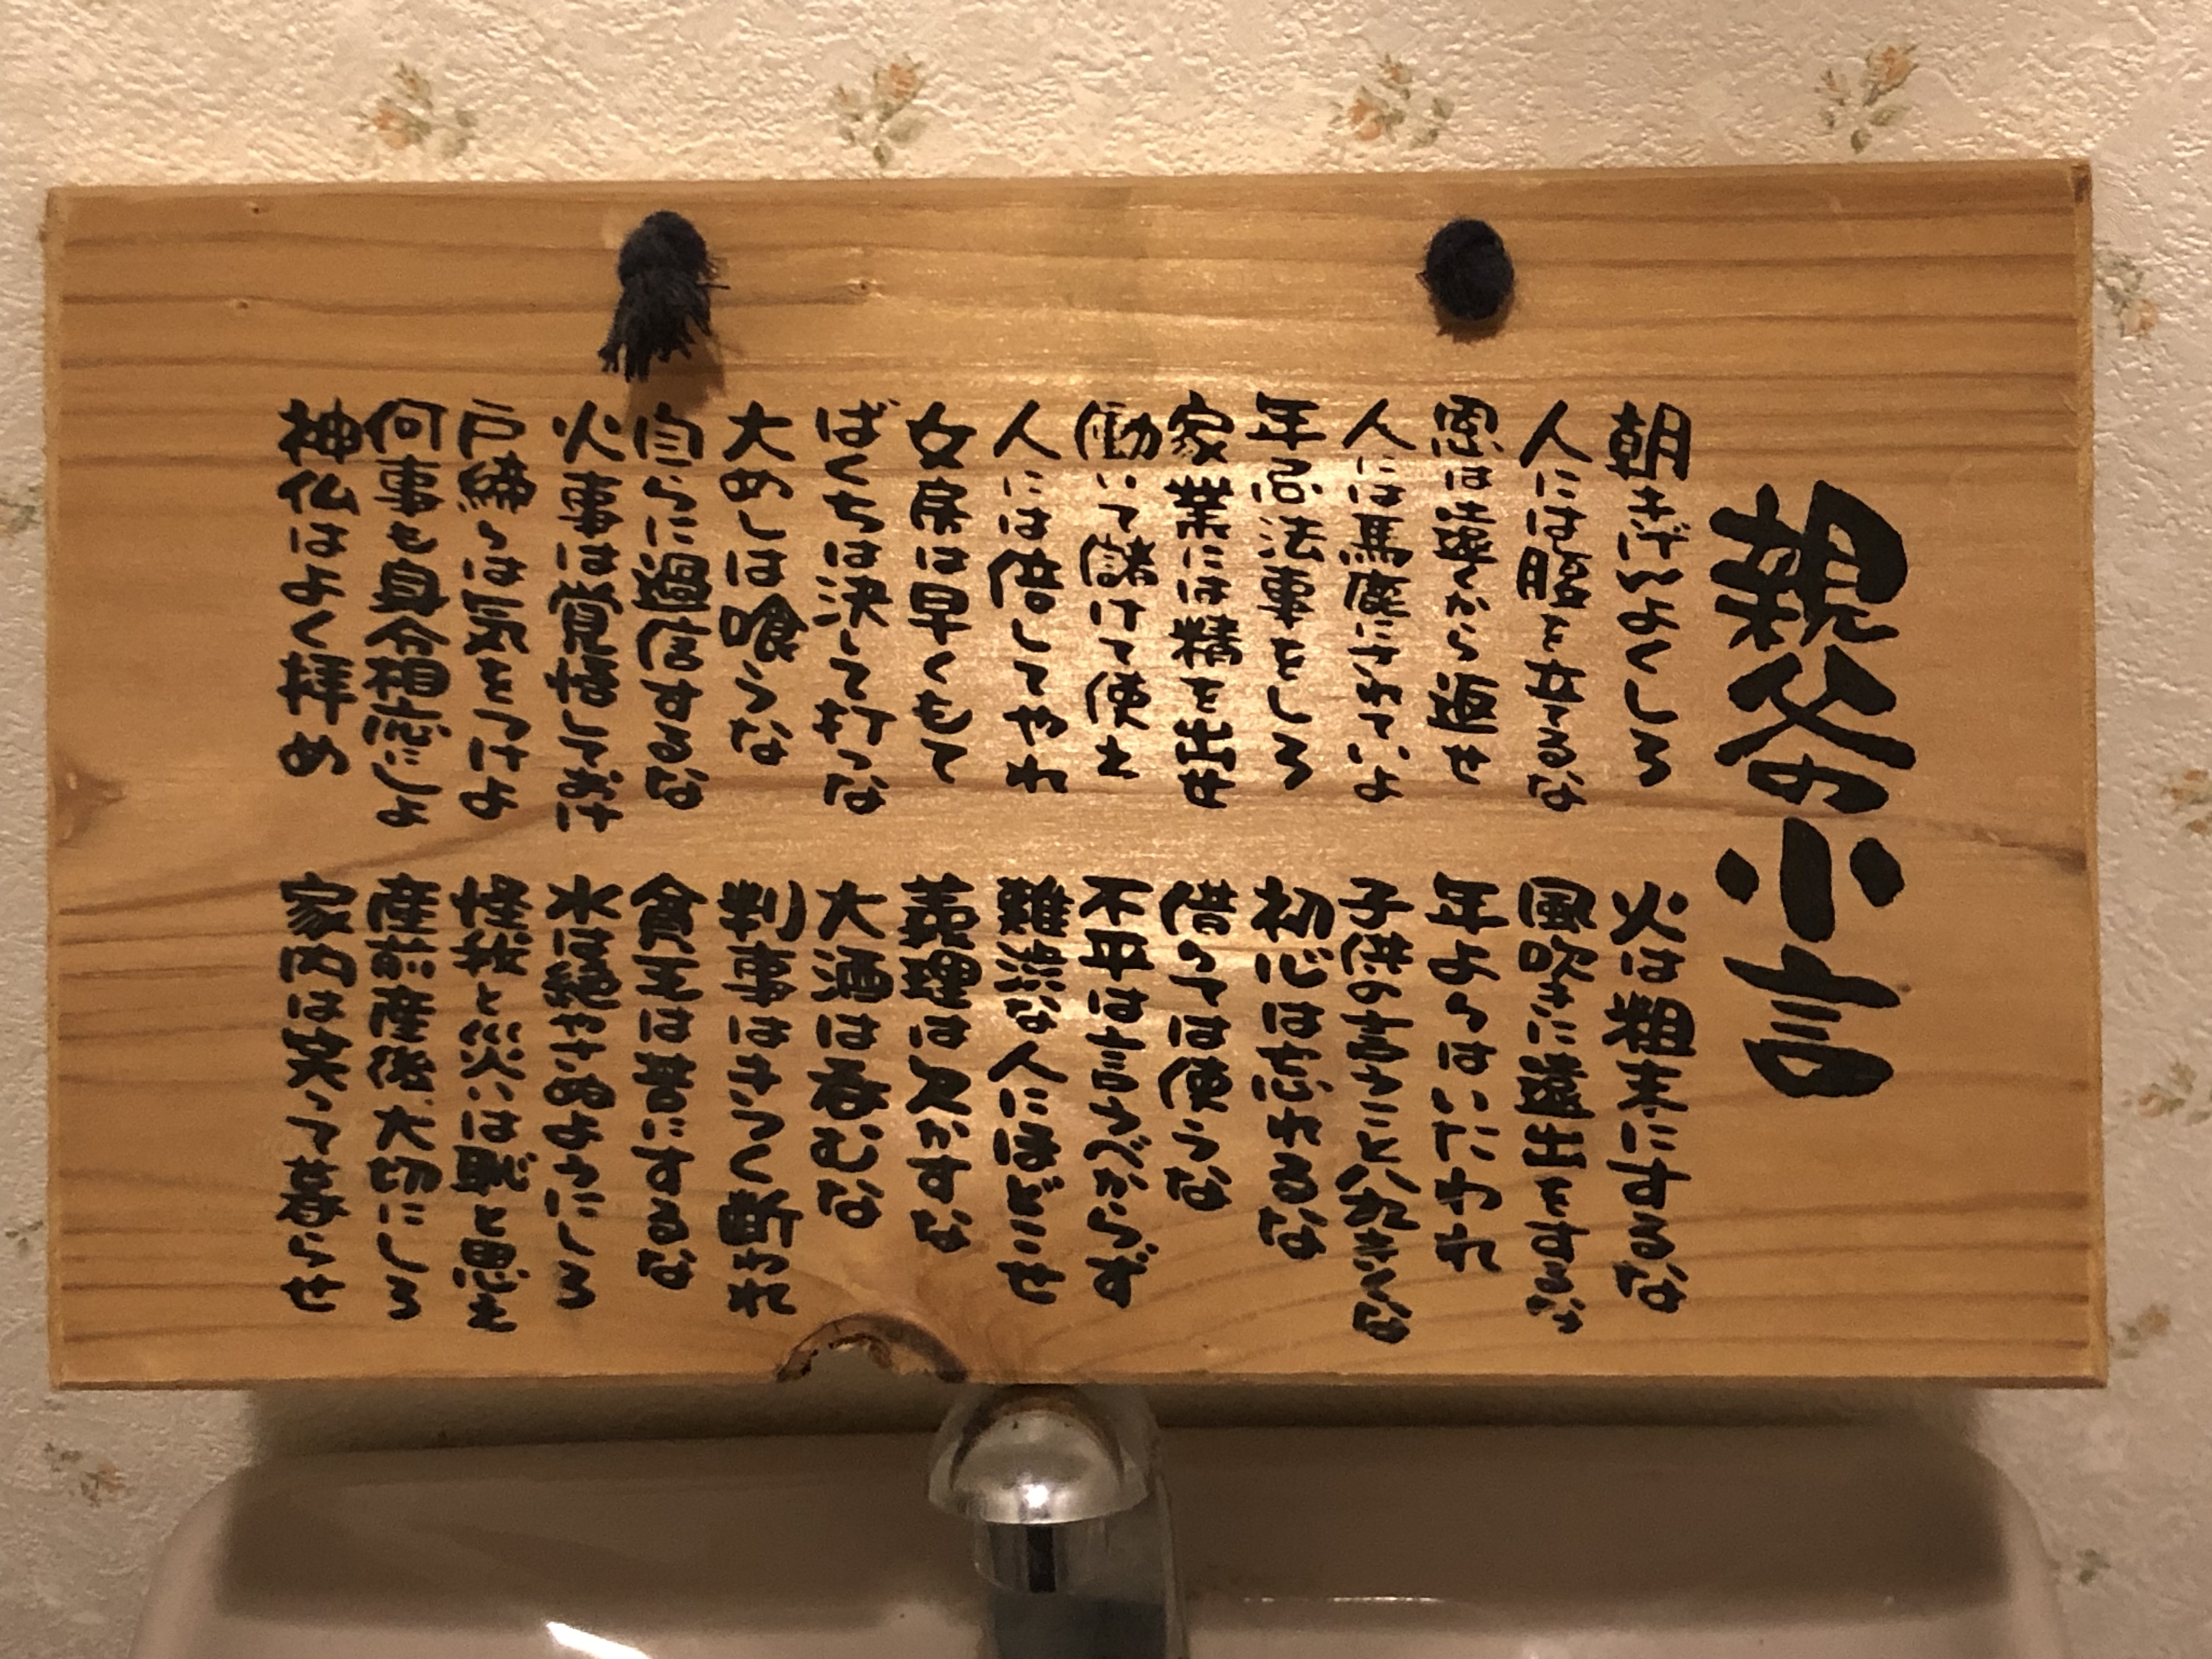 親父の小言
朝きげんよくしろ
人には腹を立てるな
恩は遠くから返せ
人には馬鹿にされていよ
年忌法事をしろ
家業には精を出せ
働いて儲けて使え
人には借してやれ
女房は早くもて
ばくちは決して打つな
大めしは喰うな
自らに過信するな
火事は覚悟しておけ
戸締りは気をつけよ
何事も身分相応にしよ
神仏はよく拝め
火は粗末にするな
風吹きに遠出をするな
年よりはいたわれ
子供の言うこと八九きくな
初心は忘れるな
借りては使うな
不平は言うべからず
難渋な人にほどこせ
義理は欠かすな
大酒は呑むな
判事はきつく断われ
貧乏は苦にするな
水は絶やさぬようにしろ
怪我と災いは恥と思え
産前産後大切にしろ
家内は笑って暮らせ